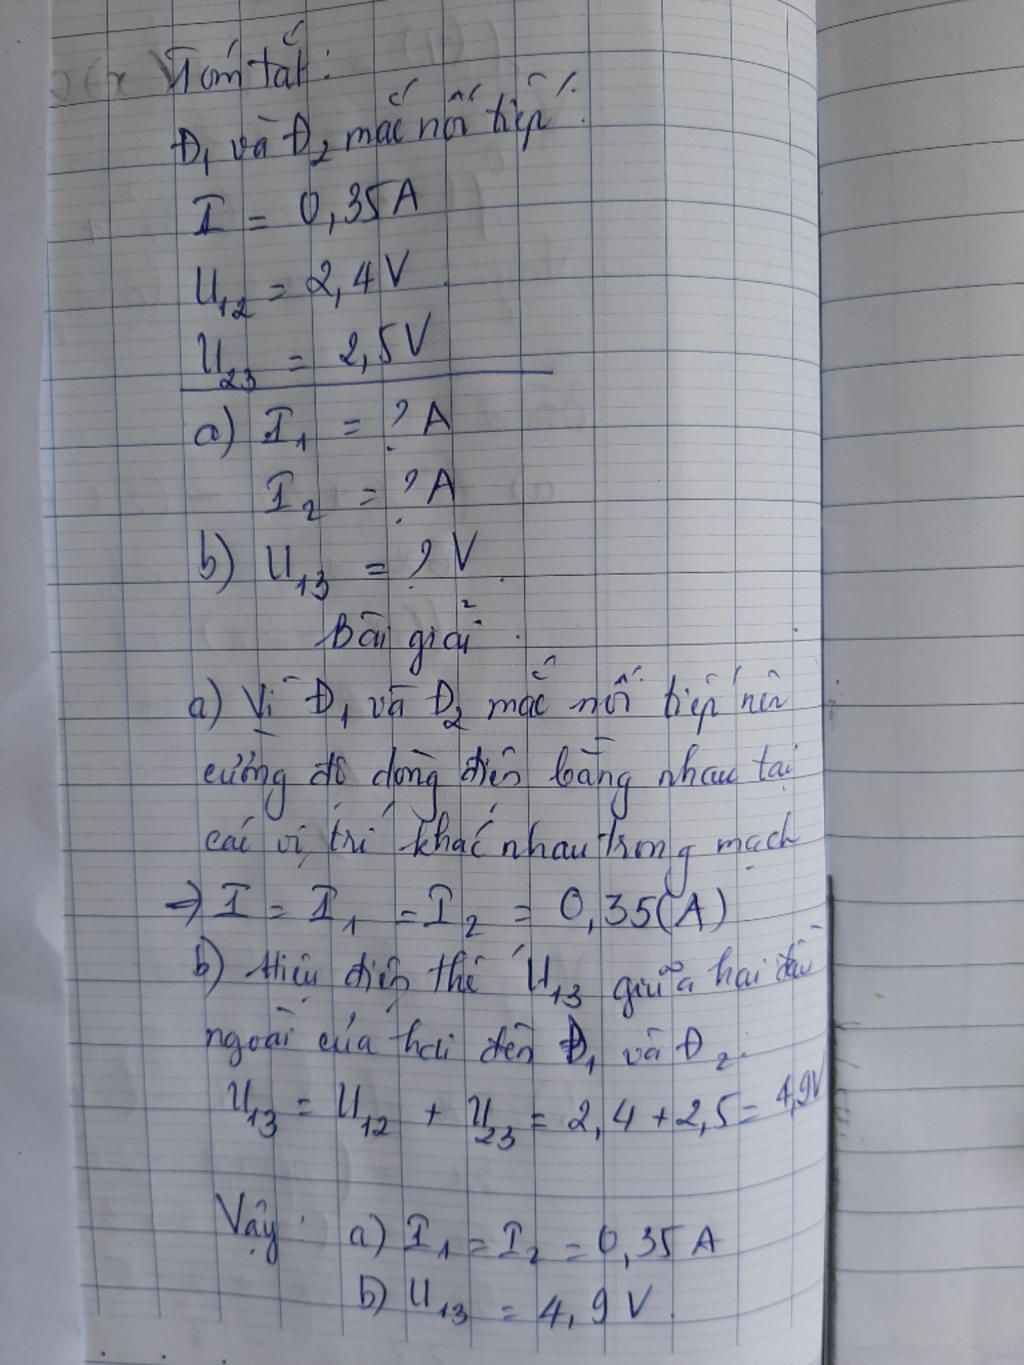 Tóm tắt:
Đ1 và Đ2 mắc nối tiếp.
I = 0,35A
U12 = 2,4V
U23 = 2,5V
a) I1 = ? A
I2 = ? A
b) U13 = ? V
Bài giải
a) Vì Đ1 và Đ2 mắc nối tiếp nên
cường độ dòng điện bằng nhau tại
các vị trí khác nhau trong mạch
=> I = I1 = I2 = 0,35(A)
b) Hiệu điện thế U13 giữa hai đầu
ngoài của hai đèn Đ1 và Đ2.
U13 = U12 + U23 = 2,4 + 2,5 = 4,9V
Vậy: a) I1 = I2 = 0,35 A
b) U13 = 4,9 V.